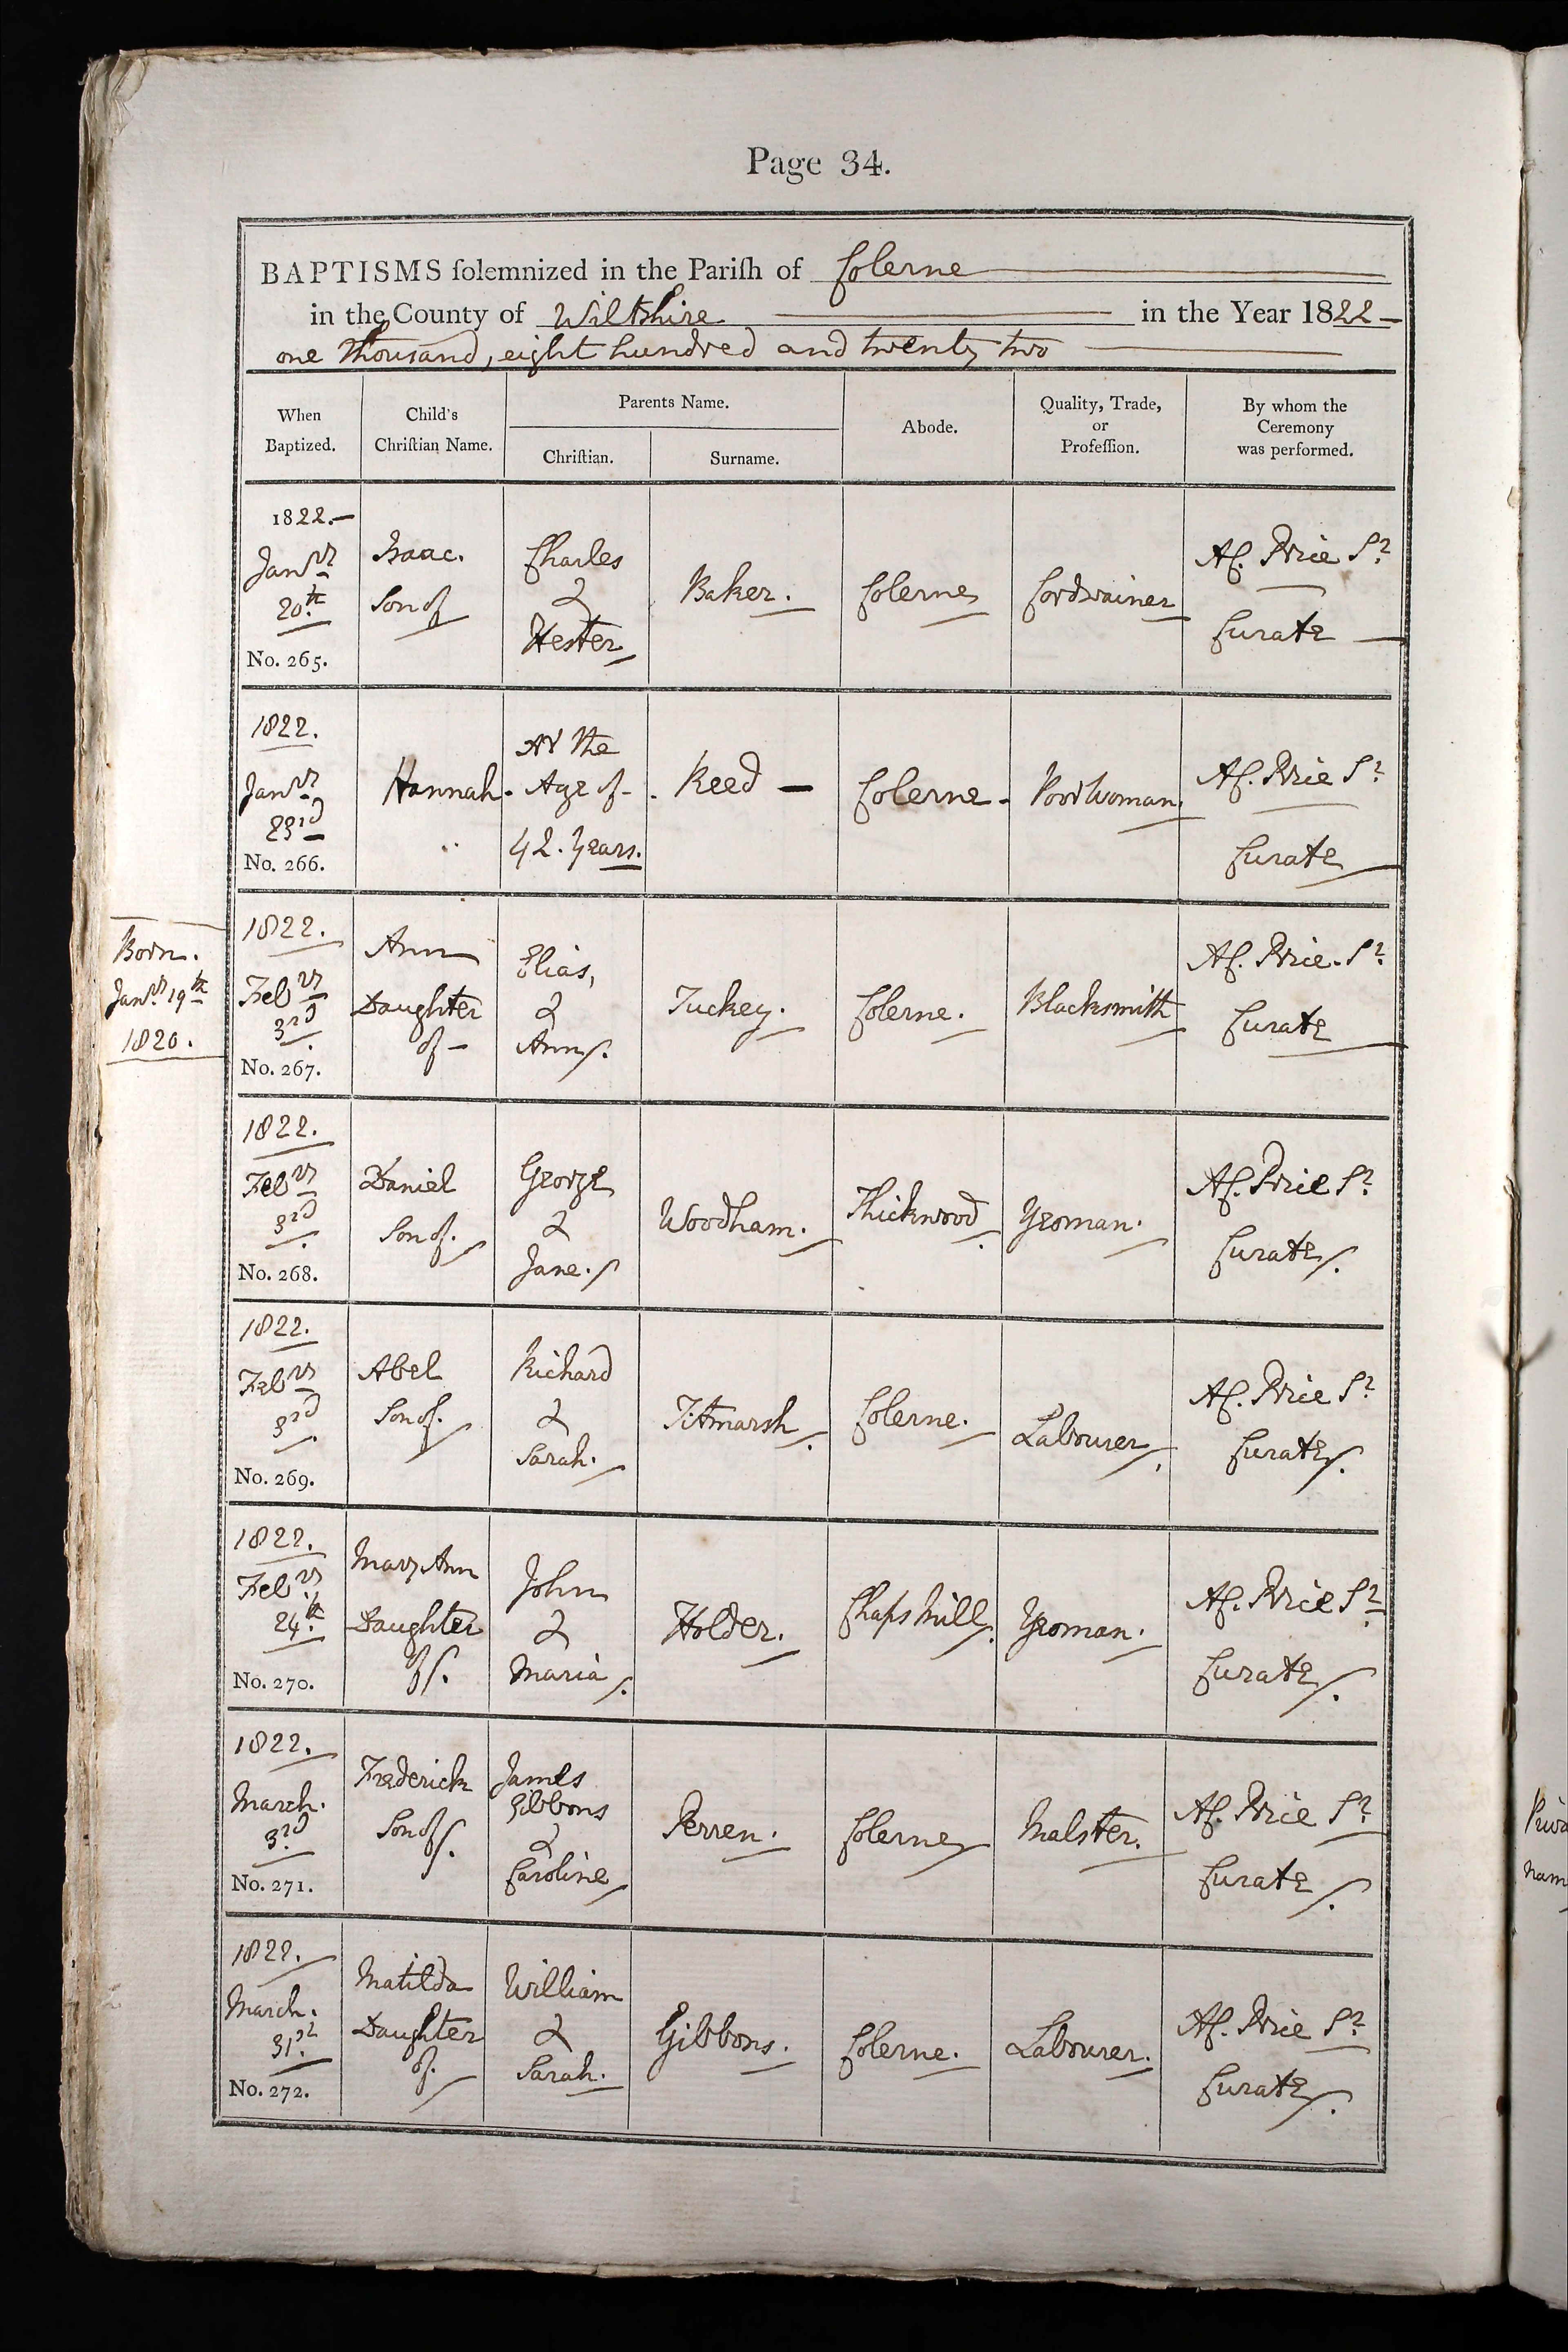 Page 34.
BAPTISMS ſolemnized in the Pariſh of Colerne
in the County of Wiltshire in the Year 1822
one thousand, eight hundred and twenty two
When Baptized.
Child's Chriſtian Name.
Parents Name.
Chriſtian.
Surname.
Abode.
Quality, Trade, or Profeſſion.
By whom the Ceremony was performed.
1822.
Jan.ry
20.th
No. 265.
Isaac.
Son of
Charles
&
Hester
Baker.
Colerne
Cordwainer
Price
Curate
1822.
Jan.ry
23rd
No. 266.
Hannah.
At the
Age of
42. Years.
Reed
Colerne
Poor Woman.
Price
Curate
Born.
Jan.ry 19th
1820.
1822.
Feb.ry
3rd
No. 267.
Ann
Daughter
of
Elias,
&
Ann.
Tuckey.
Colerne.
Blacksmith
Price
Curate
1822.
Feb.ry
3rd
No. 268.
Daniel
Son of.
George
&
Jane.
Woodham.
Thickwood
Yeoman.
Price
Curate.
1822.
Feb.ry
3rd
No. 269.
Abel
Son of.
Richard
&
Sarah.
Titmarsh
Colerne.
Labourer
Price
Curate.
1822.
Feb.ry
24.th
No. 270.
Mary Ann
Daughter
of.
John
&
Maria.
Holder.
Chaps Mill
Yeoman.
Price
Curate.
1822.
March.
3rd
No. 271.
Frederick
Son of.
James
Gibbons
&
Caroline
Perren.
Colerne
Malster.
Price
Curate.
1822.
March.
31.st
No. 272.
Matilda
Daughter
of.
William
&
Sarah.
Gibbons.
Colerne.
Labourer.
Price
Curate.